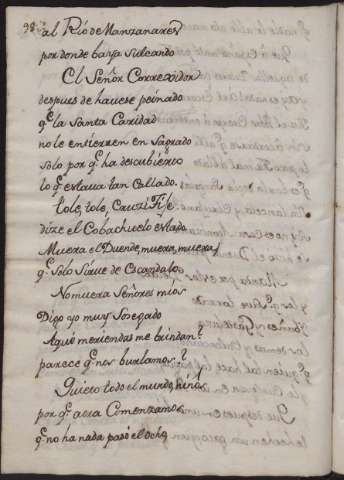 98
al Rio de Manzanares
por donde baxa sulcando
El Señor Correxidor
despues de hauese peinado
qᵉ la Santa Caridad
no le entierren en Sagrado
solo por qᵉ ha descubierto
lo qᵉ estaua tan Callado.
tole, tole, Cruzifije
dize el Cobachuelo estado
Muera el Duende, muera, muera,
qᵉ Solo Sirue de Escandalo.
No muera Señores mios
Digo yo muy Sosegado
Aqui meriendas me brindan?
parece qᵉ nos burlamos?
Quieto todo el mundo, niños
por qᵉ aora Comenzamos
qᵉ no ha nada pasó el ocho